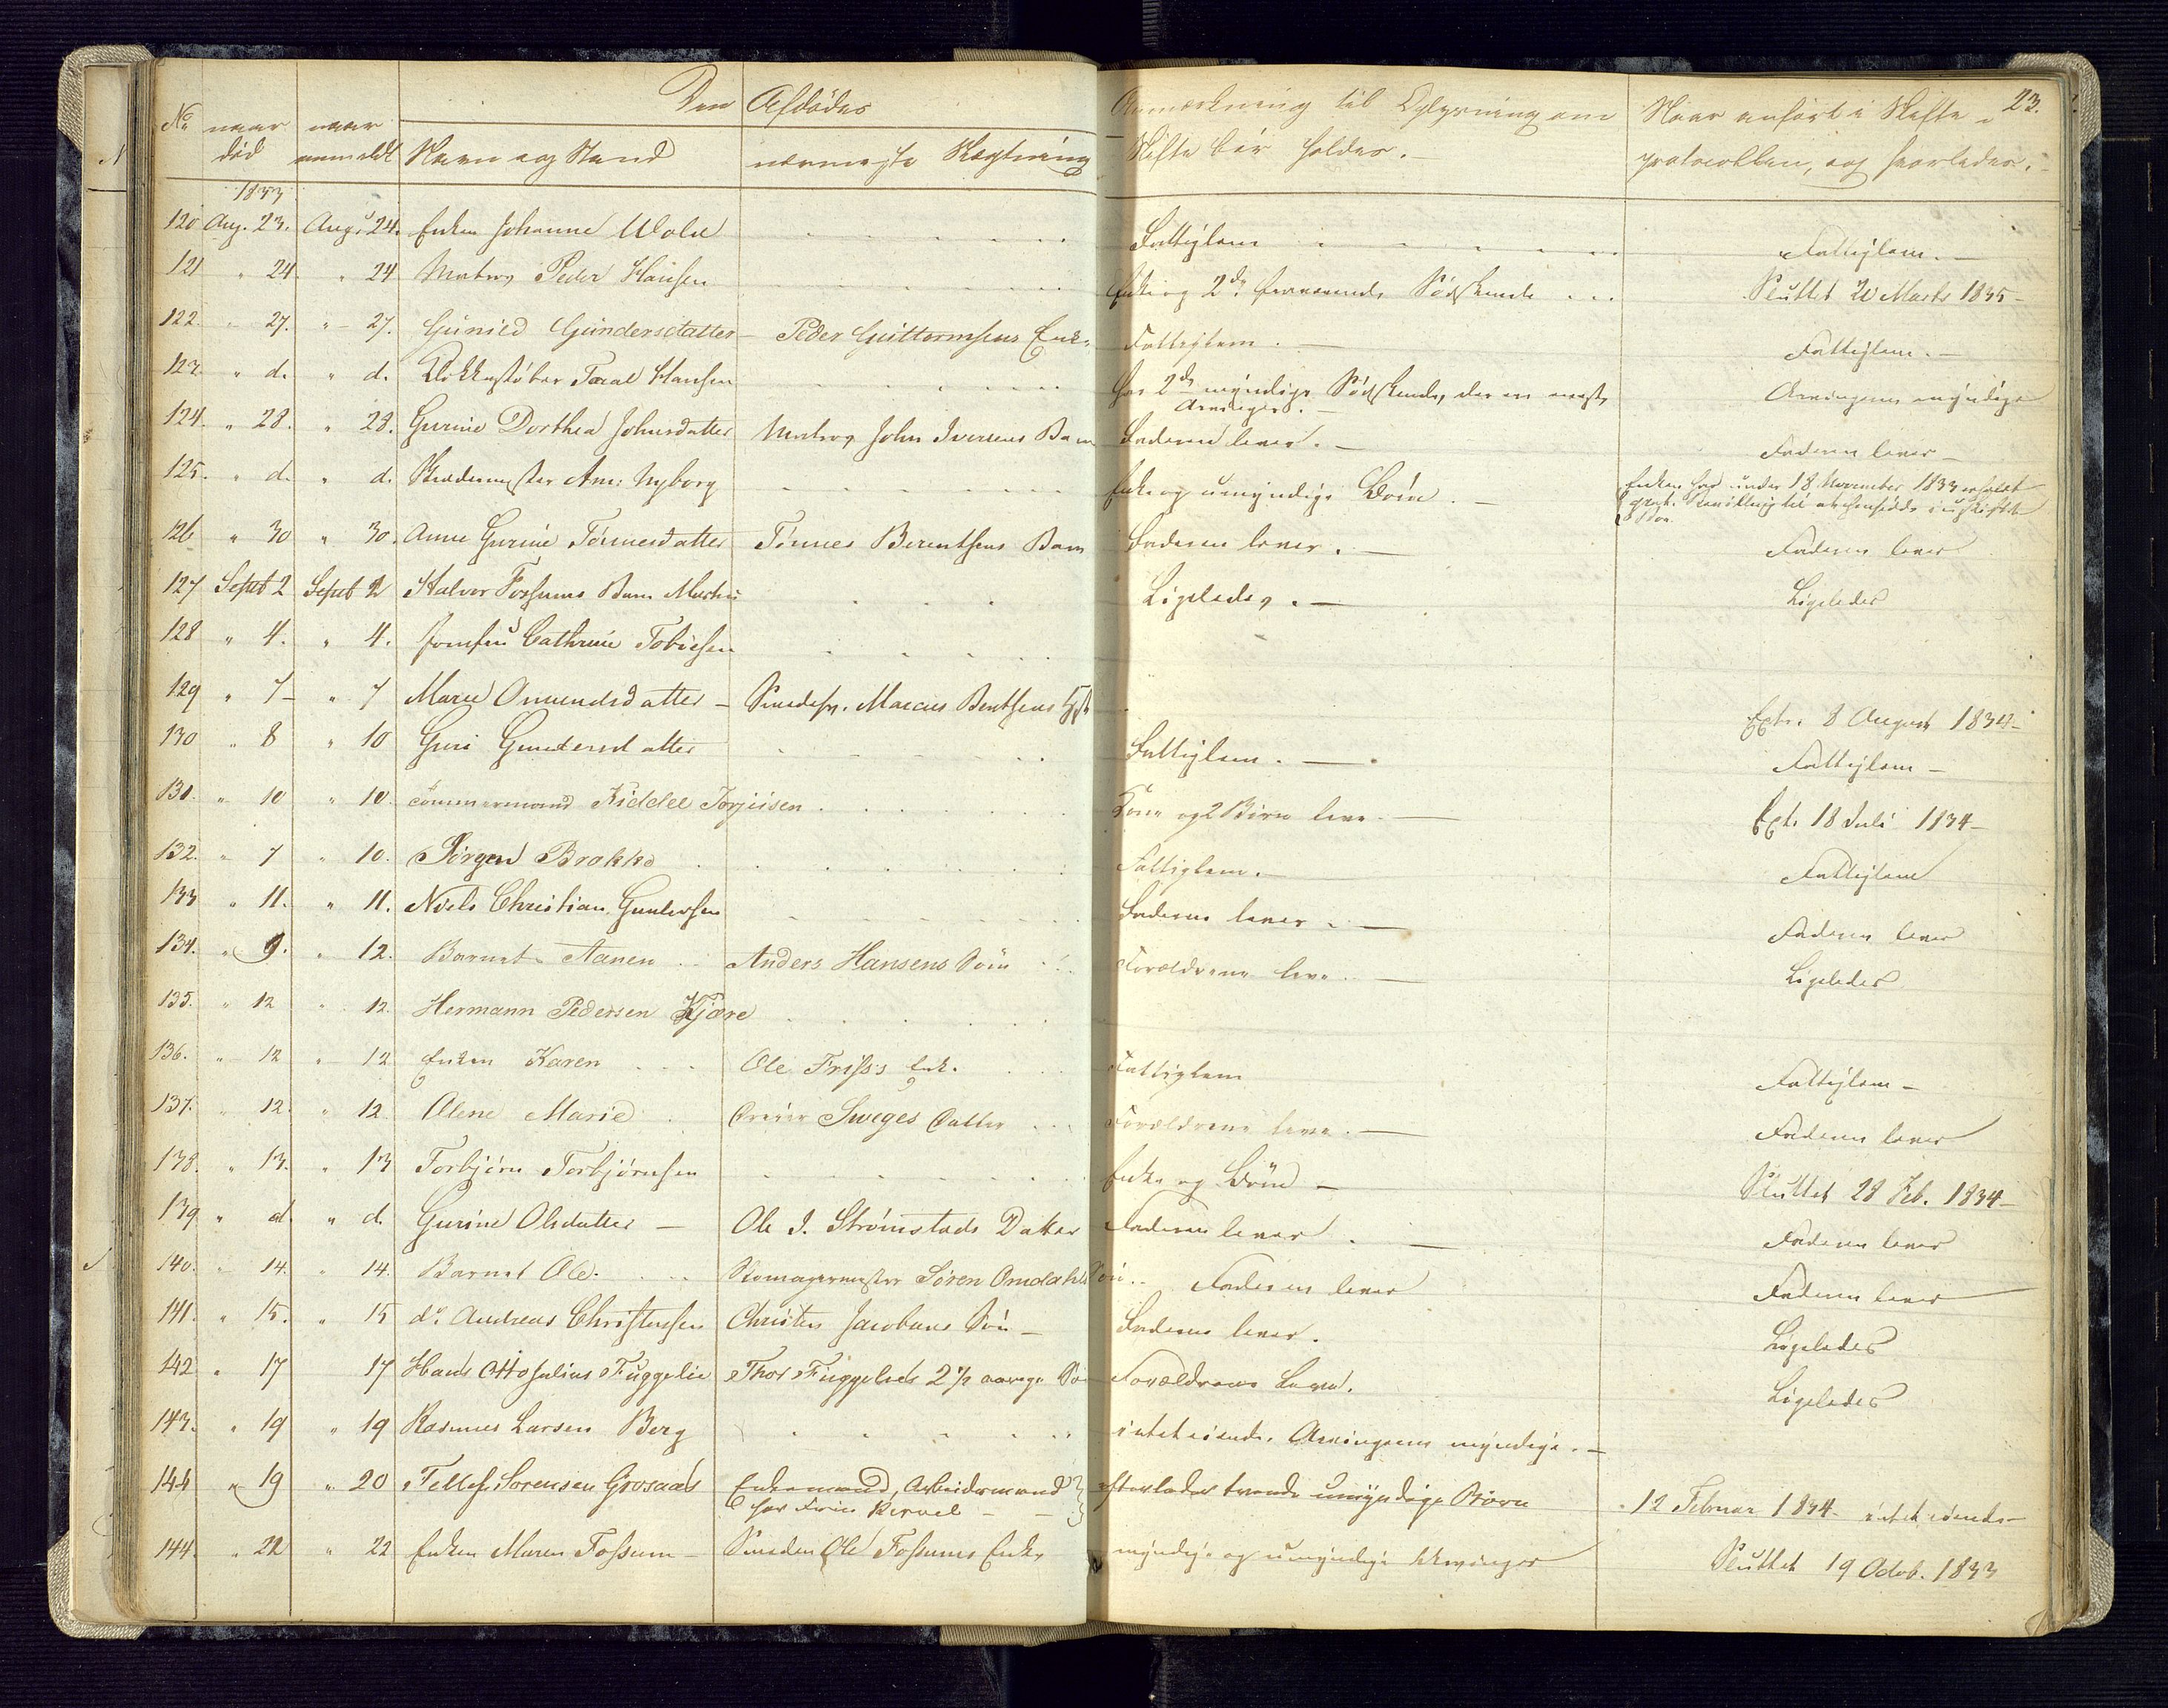 23.
Den Afdødes
No naar død naar anmeldt Navn og Stand nærmeste Slægtning Anmærkning til Oplysning om Skifte bør holdes. Naar anført i Skifteprotocollen, og hvorledes.
1833
120 Aug. 23. Aug. 24. Enken Johanne Fattiglem Fattiglem.
121 " 24 " 24 Matros Peder Hansen Enke og 2de Sødskende Sluttet 20 Marts 1835
122. " 27. " 27. Gunild Gundersdatter Peder Guttormsens Enke Fattiglem. Fattiglem.
123. " d. " d. Hansen har 2de myndige Sødskende, der er Arvinger. Arvingerne myndige
124. " 28. " 28. Gurine Dorthea Johnsdatter Matros John Iversens Barn Faderen lever. Faderen lever
125. " d. " d. Nyborg Enke og umyndige Børn. Enken har under 18 November 1833 erholdt Bevilling til at hensidde i uskiftet Boe
126 " 30 " 30. Anne Gurine Tønnesdatter Tønnes Berentsens Barn Faderen lever. Faderen lever
127 Septb 2 Septb 2 Halvor Fossums Barn Ligeledes. Ligeledes
128 " 4. " 4. Jomfru Cathrine Tobiesen
129 " 7 " 7 Maren Omundsdatter Marcus Bentsens Extr. 8 August 1834
130 " 8 " 10 Guri Gundersdatter Fattiglem. Fattiglem
131. " 10 " 10. Tømmermand Kiddel Torjusen Kone og 2 Børn leve. Extr. 18 Juli 1834
132. " 7 " 10. Jørgen Brokke Fattiglem. Fattiglem
133 " 11. " 11. Niels Christian Gundersen Faderen lever. Faderen lever
134. " 9. " 12. Barnet Aanen Anders Hansens Søn Forældrene leve. Ligeledes
135. " 12 " 12. Hermann Pedersen Kjære
136. " 12 " 12 Enken Karen Ole Friss's Enke Fattiglem Fattiglem
137. " 12. " 12 Olene Marie Sveges Datter Forældrene leve. Faderen lever
138. " 13. " 13 Torbjørn Torbjørnsen Enke og Børn Sluttet 28 Feb. 1834
139 " d. " d. Gurine Olsdatter Ole J. Strømstads Datter Faderen lever. Faderen lever
140. " 14. " 14. Barnet Ole. Skomagermester Søren Omdahls Søn.. Faderen lever Faderen lever
141. " 15. " 15 do Andreas Christensen Christen Jacobsens Søn Faderen lever. Ligeledes
142 " 17 17 Hans Otto Julius Fuggelie Thor Fuggelies 2 1/2 aarige Søn Forældrene leve. Ligeledes
143. " 19 " 19 Rasmus Larsen Berg intet eiende. Arvingerne myndige.
144 " 19 " 20 Tellef Sørensen Grosaas Enkemand, Arbeidsmand efterlader trende umyndige Børn 12 Februar 1834 intet eiende
144. " 22 " 22 Enken Maren Fossum Smeden Ole Fossums Enke myndige og umyndige Arvinger Sluttet 19 Octob. 1833